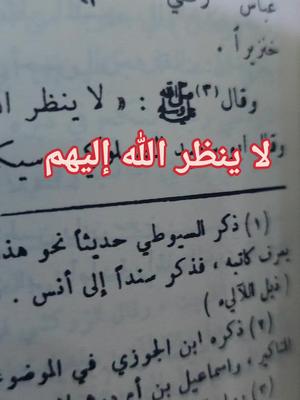 عباس
خنزيراً .
وقال(٣) ﷺ : « لا ينظر ا
لا ينظر الله إليهم
(١) ذكر السيوطي حديثاً نحو هذ
يعرف كاتبه ، فذكر سنداً إلى أنس .
(ذيل اللآلىء)
(٢) ذكره ابن الجوزي في الموضو
المناكير ، واسماعيل بن
(٣)